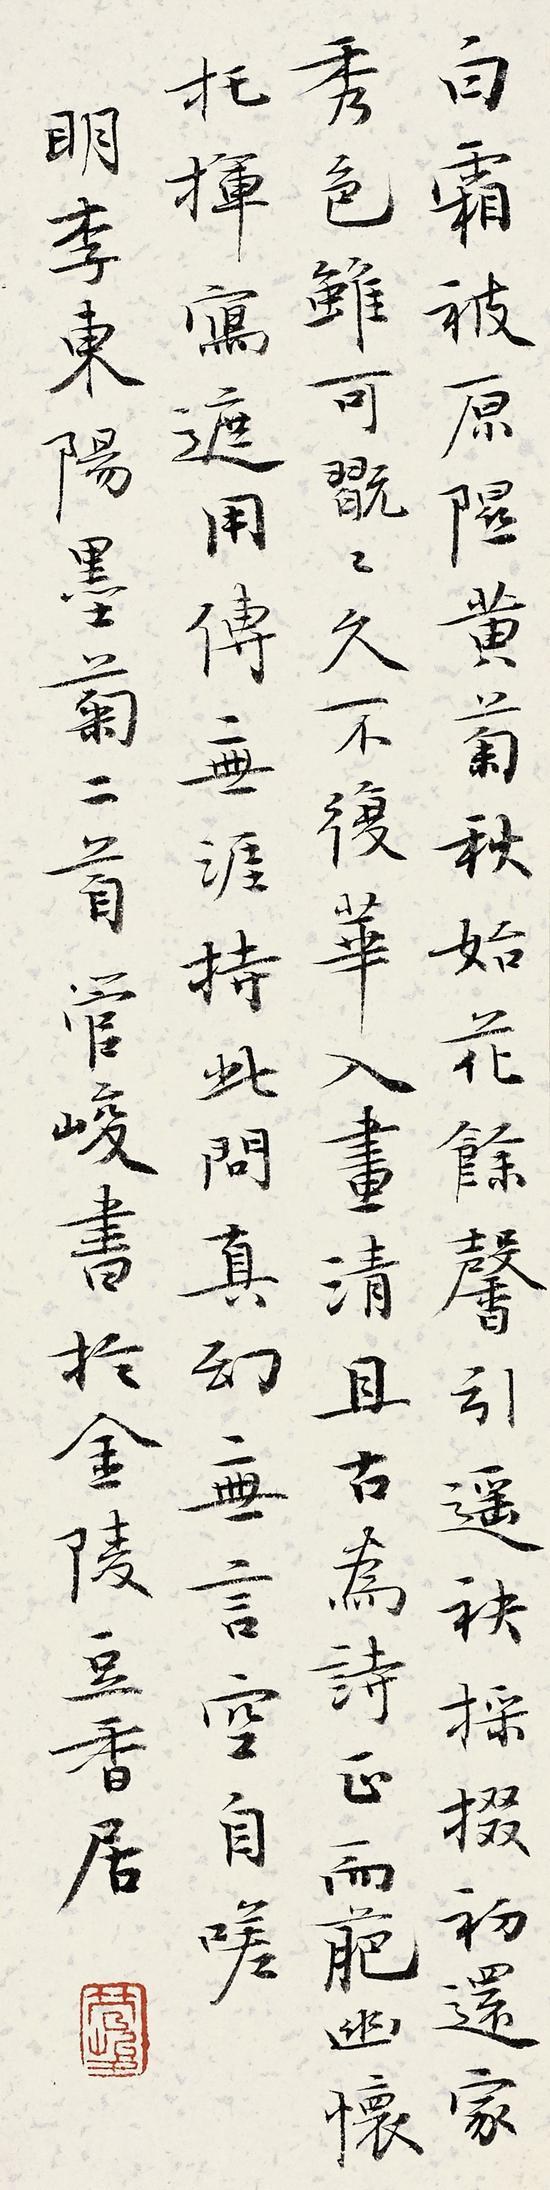 白霜被原隰黄菊秋始花餘馨引遥袂採掇初還家
秀色雖可翫翫久不復華入畫清且古為詩正而葩幽懷
托揮寫遮用傳無涯持此問真幻無言空自嗟
明李東陽墨菊二首管峻書於金陵豆香居